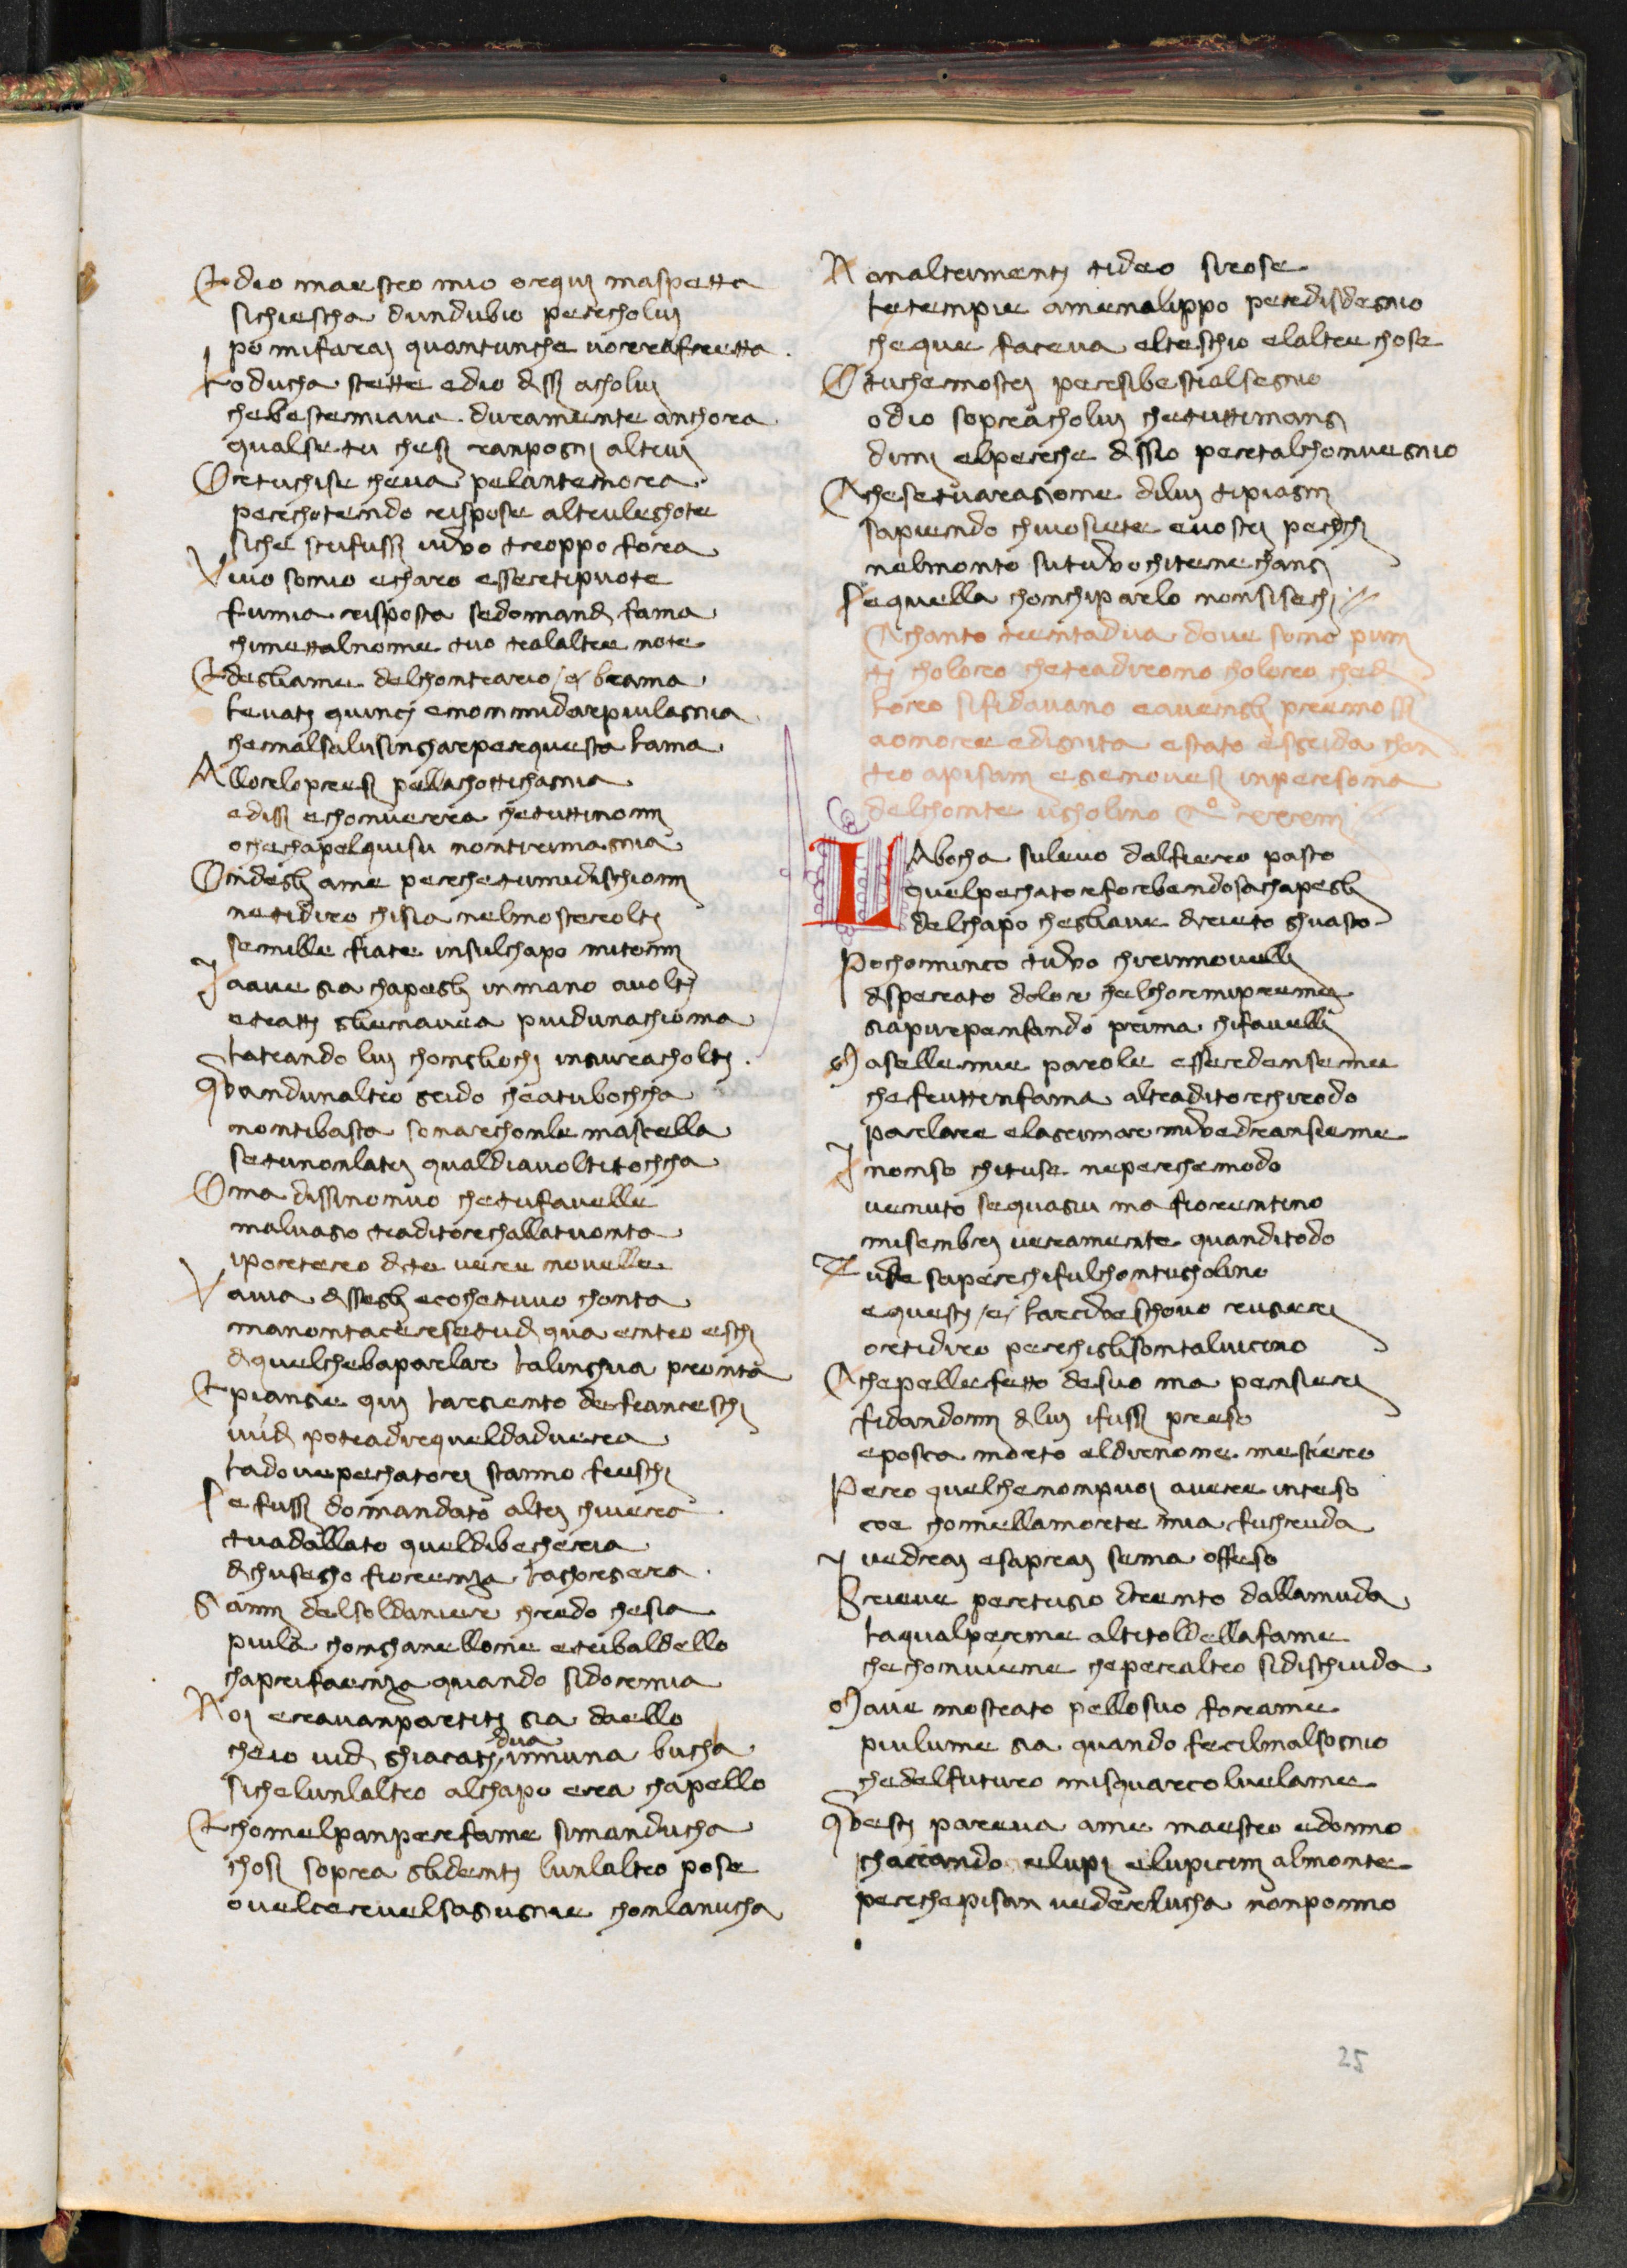 Edio maestro mio orqui maspetta
sichiescha dundubio percholui
po mifarai quantunche uorrafretta
Loducha stette edio dissi acholui
chebestemiaua duramente anchora
qualsetu chesi ranpogni altrui
Ortuchise cheua pelantenora
perchotendo rispose altruleghote
siche sefussi uiuo troppo fora
Viuo sonio echaro essertipuote
fumia risposta sedomandi fama
chimettalnome tuo tralaltre note
Edegliame delchontrario /e/ brama
leuati quinci enonmidarpiulagnia
chemalsalusingharperquesta lama
Allorlopresi pellachottichagnia
edissi echonuerra chetuttinomi
ochechapelquisu nontirimagnia
Ondegli ame perchetumidischiomi
netidiro chisia nelmosterolti
semille fiate insulchapo mitomi
Iaaue gia chapegli inmano auolti
etratti glienauea piudunachioma
latrando lui chongliochi ingiuracholti
Quandunaltro grido cheatubochcha
nontibasta sonarchonle mascella
setunonlatri qualdiauoltitochcha
Oma dissinonuo chetufauelle
maluagio traditorechallatuonta
iporterò dite uere nouelle
Vauia dissegli ecochetuuo chonta
manontaceresetudi qua entro eschi
diquelchebaparlar lalinghua pronta
Epiangie qui largiento defranceschi
iuidi potradirequeldaduera
ladouepechatori stanno freschi
Sefussi domandato altri chiuera
tuadallato queldibecheria
dichusegho fiorenza lachorgiera
Gianni delsoldanier chredo chesia
piula chonghanellone etribaldello
chaprifaenza quando sidormia
Noi erauanpartiti gia daello
cheio uidi ghiacati dua innuna bucha
sichelunlaltro alchapo era chapello
Echomelpanperfame simanducha
chosi sopra glidenti lunlaltro pose
ouelceruelsagiugnie chonlanucha
Nonaltrimenti tideo sirose
letempie amenalippo perdisdegnio
cheque faceua elteschio elaltre chose
Otuchemostri persibestialsegnio
odio sopracholui chetuttimangi
dimi elperche dissio pertalchonuegnio
Chesetuaragione dilui tipiagni
sapiendo chiuosiete euostri pechi
nelmonto sutuuochitenechangi
Sequella chonchiparlo nonsisechi
Chanto trentadua doue sono puni
ti choloro chetradirono choloro chedi
loro sifidauano eauengli promossi
aonore edignita estato esgrida chon
tro apisani egienouesi inpersona
delchonte ugholino Co xxxiii
LAbocha suleuo dalfiero pasto
quelpechatoreforbendosachapegli
delchapo chegliaue drieto ghuasto
Pochominco tuuo chirinnouelli
disperato dolor chelchormipreme
giapurpensando prima chifauelli
Maselle mie parole esserdenseme
chefruttinfama altraditorechirodo
parlare elagrimare miuedraninsieme
Inonso chituse neperchemodo
uenuto sequagiu ma fiorentino
misembri ueramente quanditodo
Tude saperchifulchontugholino
equesti /e/ larciueschouo rugieri
ortidiro perchiglisontaluicino
Chepelleffetto desuo ma pensieri
fidandomi dilui ifussi preso
eposca morto eldirenone mestiero
Pero quelchenonpuoi auere inteso
coe chomellamorte mia fuchruda
uedrai esaprai sema offeso
Brieue pertugio drento dallamuda
laqualperme altitoldellafame
chechonuiene cheperaltro sidischiuda
Maue mostrato pellosuo forame
piulume gia quando fecilmalsognio
chedelfuturo misquarcoluelame
Questi pareua ame maestro edonno
chacciando elupi elupicini almonte
perchepisan uederlucha nonponno
25